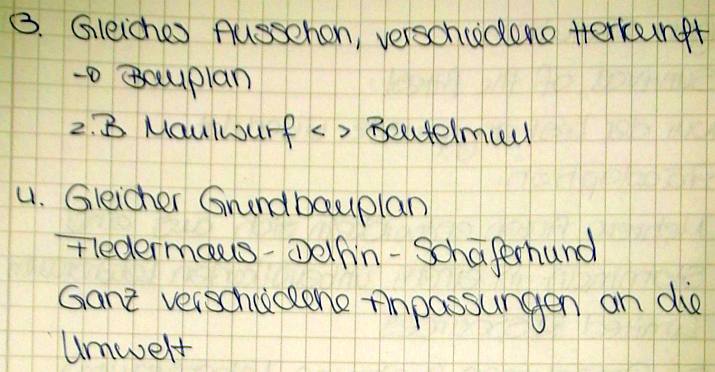 3. Gleiches Aussehen, verschiedene Herkunft
→ Bauplan
z.B Maulwurf <> Beutelmull
4. Gleicher Grundbauplan
Fledermaus - Delfin - Schäferhund
Ganz verschiedene Anpassungen an die
Umwelt